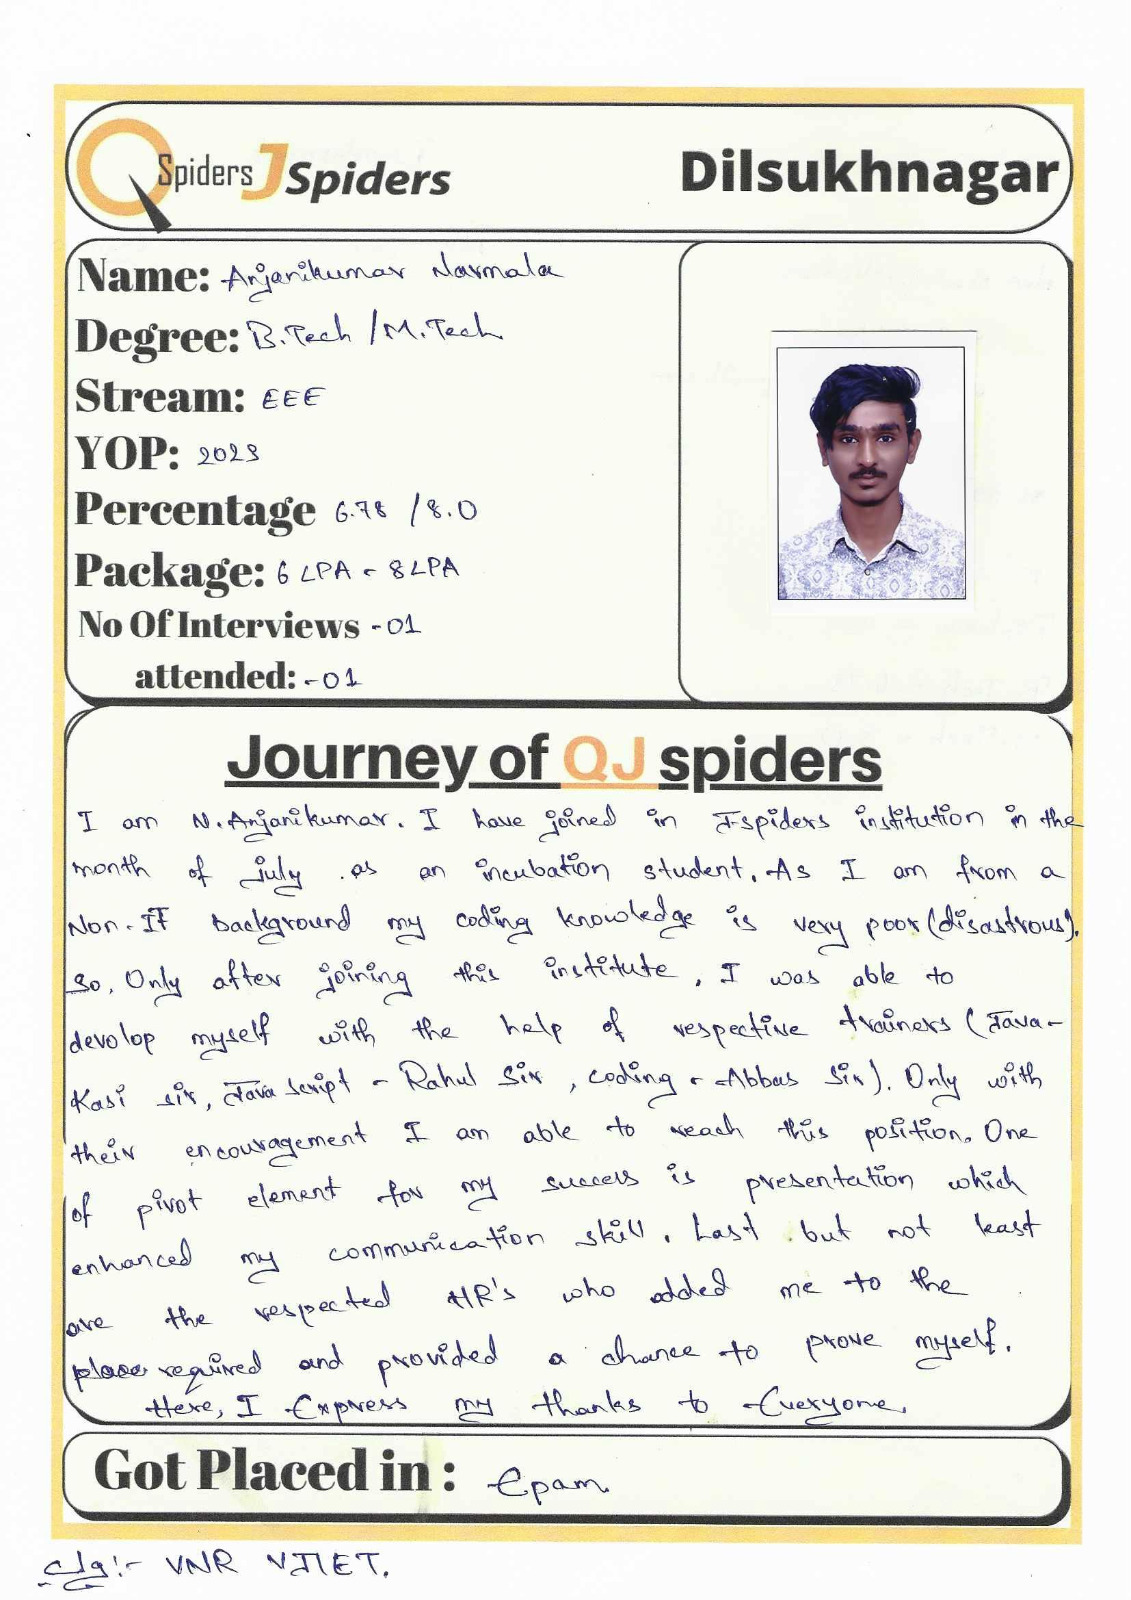 QSpiders JSpiders Dilsukhnagar
Name: Anjanikumar Narmala
Degree: B.Tech / M.Tech
Stream: EEE
YOP: 2023
Percentage 6.78 / 8.0
Package: 6 LPA - 8 LPA
No Of Interviews - 01
attended: - 01
Journey of QJ spiders
I am N. Anjanikumar. I have joined in Jspiders institution in the
month of july as an incubation student. As I am from a
Non-IT background my coding knowledge is very poor (disastrous).
So, Only after joining this institute, I was able to
devolop myself with the help of respective trainers (Java -
Kasi sir, Java Script - Rahul Sir, coding - Abbas Sir). Only with
their encouragement I am able to reach this position. One
of pivot element for my success is presentation which
enhanced my communication skill. Last but not least
are the respected HR's who added me to the
place required and provided a chance to prove myself.
Here, I Express my thanks to Everyone.
Got Placed in : Epam
clg:- VNR VJIET.